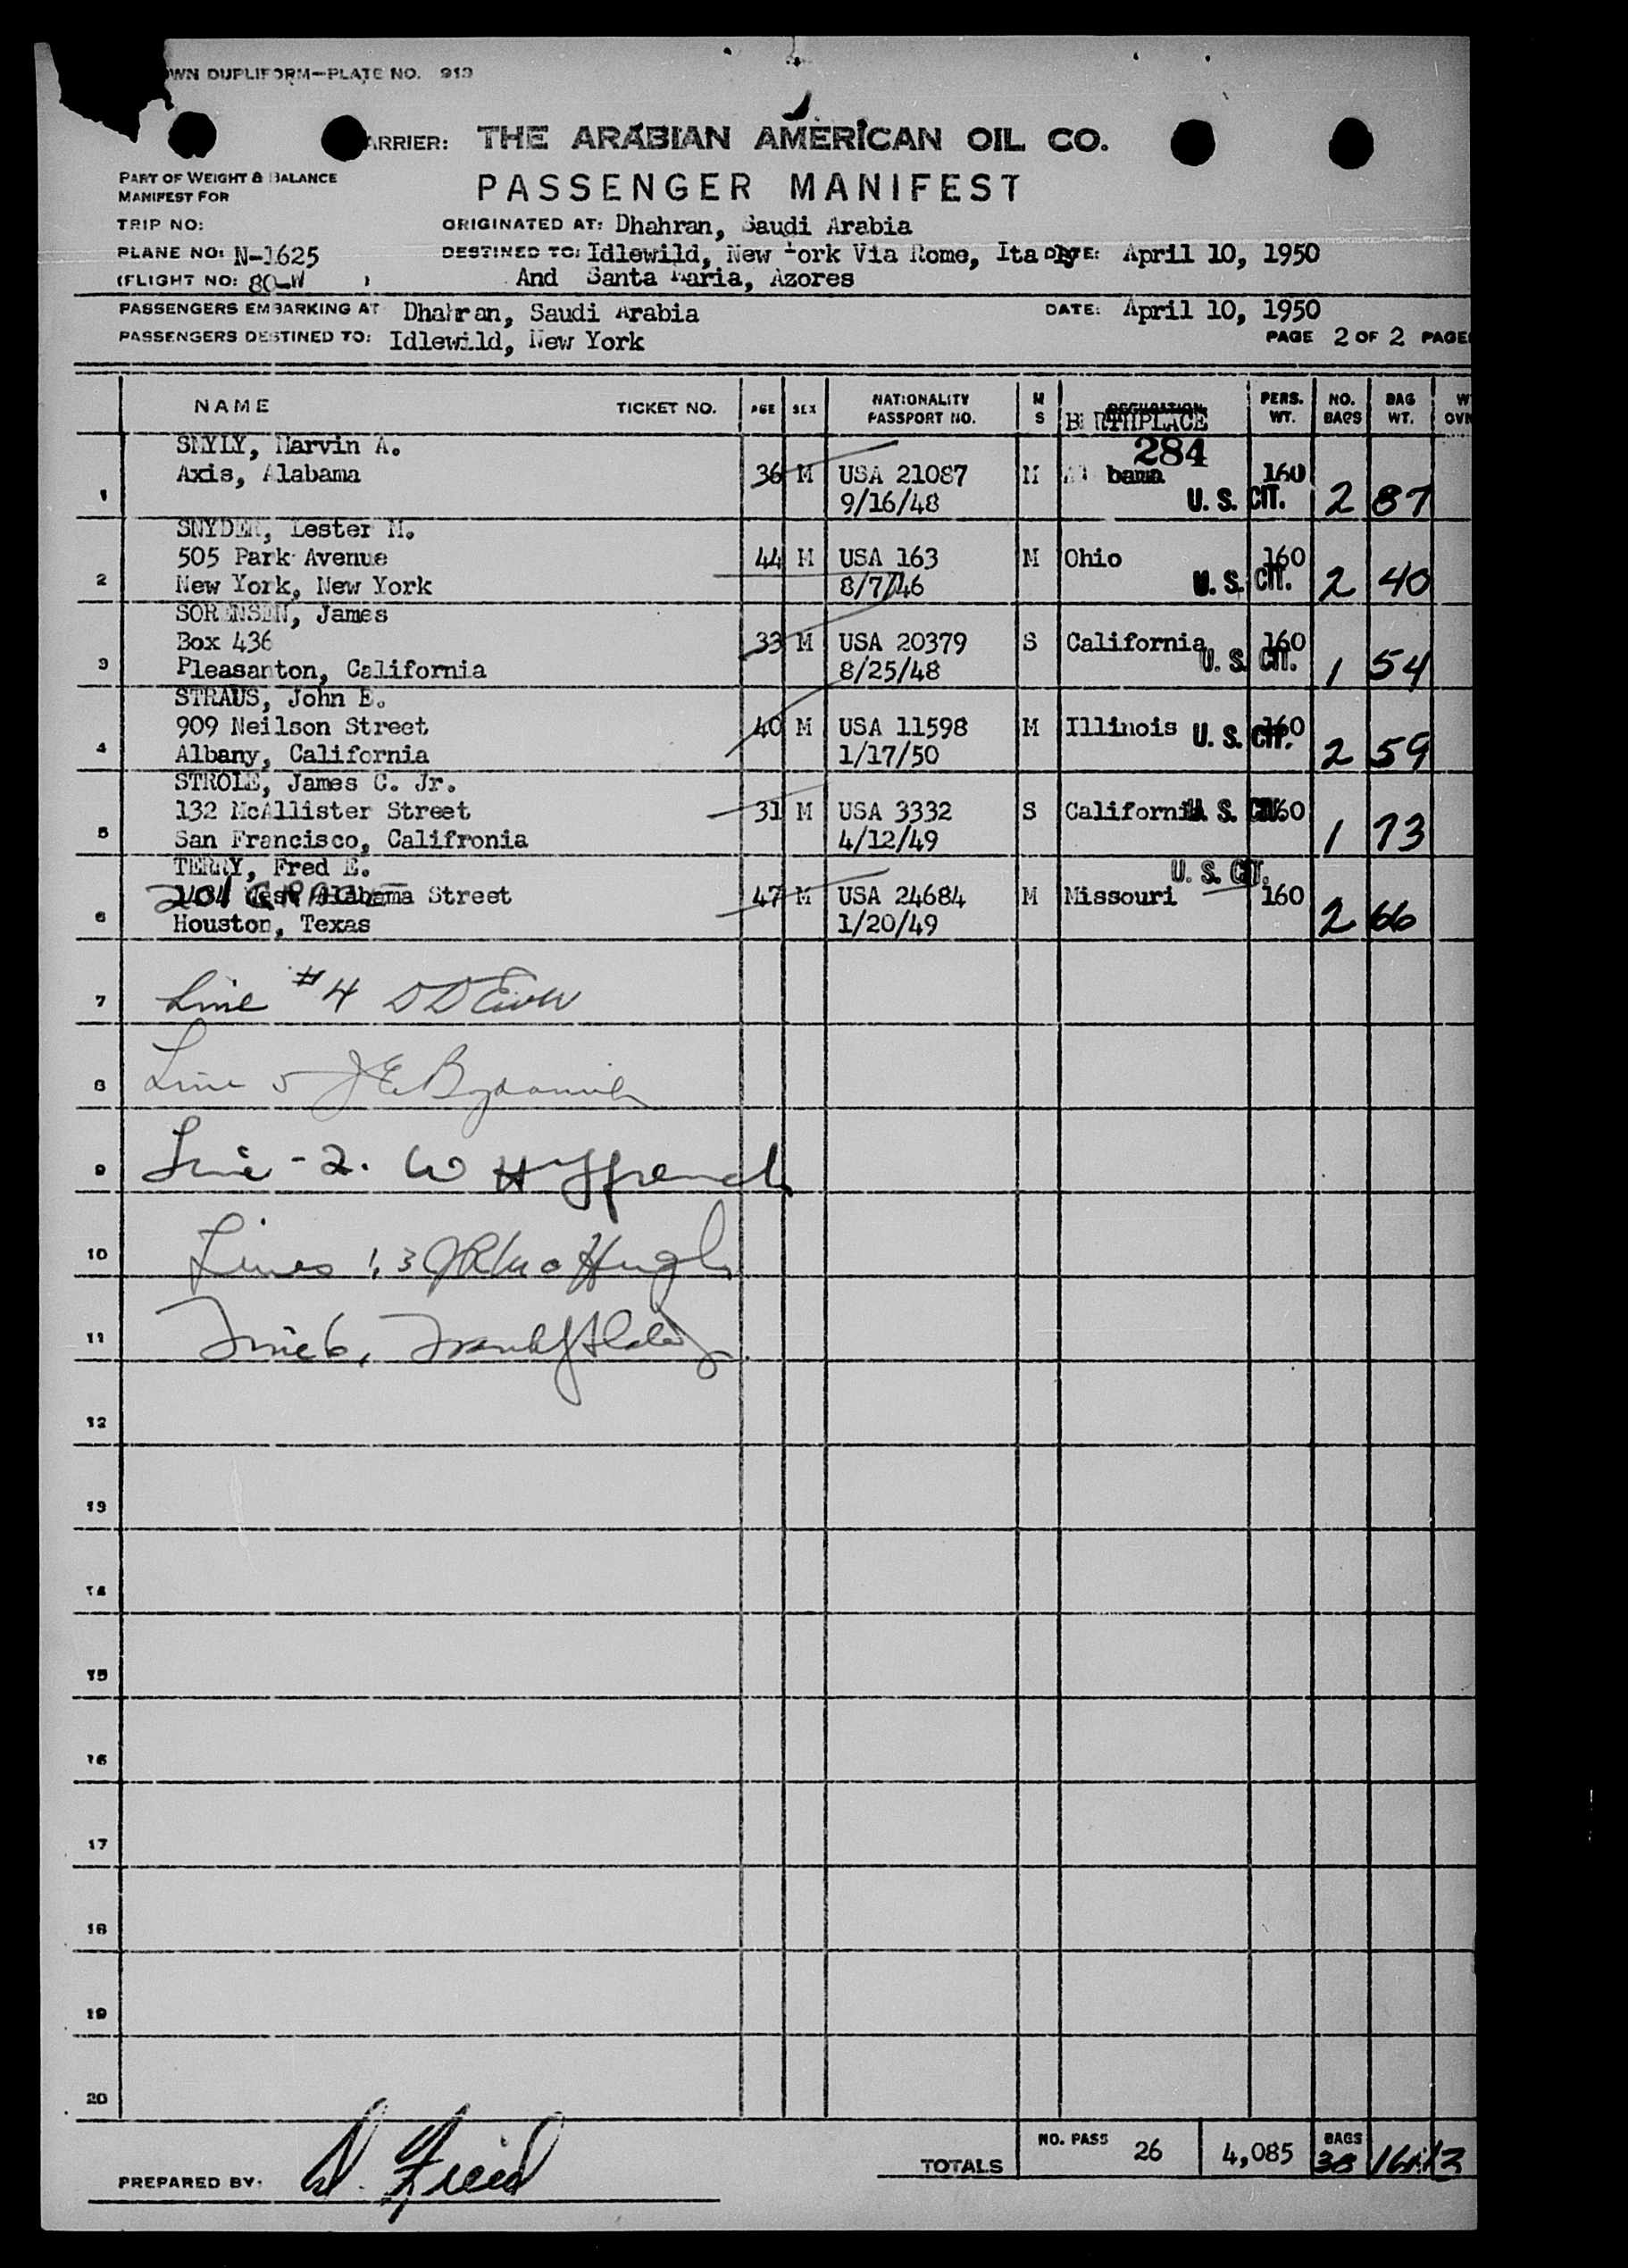 OWN DUPLIFORM—PLATE NO. 913
ARRIER: THE ARABIAN AMERICAN OIL CO.
PART OF WEIGHT & BALANCE
MANIFEST FOR
PASSENGER MANIFEST
TRIP NO: ORIGINATED AT: Dhahran, Saudi Arabia
PLANE NO: N-1625 DESTINED TO: Idlewild, New York Via Rome, Italy DATE: April 10, 1950
(FLIGHT NO: 80-W ) And Santa Maria, Azores
PASSENGERS EMBARKING AT Dhahran, Saudi Arabia DATE: April 10, 1950
PASSENGERS DESTINED TO: Idlewild, New York PAGE 2 OF 2 PAGE
NAME TICKET NO. AGE SEX NATIONALITY PASSPORT NO. M S OCCUPATION BIRTHPLACE PERS. WT. NO. BAGS BAG WT. W OVN
SMYLY, Marvin A. 284
Axis, Alabama 36 M USA 21087 M bama 160
1 9/16/48 U. S. CIT. 2 87
SNYDER, Lester M.
505 Park Avenue 44 M USA 163 M Ohio 160
2 New York, New York 8/7/46 U. S. CIT. 2 40
SORENSEN, James
Box 436 33 M USA 20379 S California 160
3 Pleasanton, California 8/25/48 U. S. CIT. 1 54
STRAUS, John E.
909 Neilson Street 40 M USA 11598 M Illinois U. S. CIT. 160
4 Albany, California 1/17/50 2 59
STROLE, James C. Jr.
132 McAllister Street 31 M USA 3332 S California U. S. CIT. 160
5 San Francisco, Califronia 4/12/49 1 73
TERRY, Fred E. U. S. CIT.
West Alabama Street 47 M USA 24684 M Missouri 160
6 Houston, Texas 1/20/49 2 66
7 Line #4
8 Line 5
9 Line - 2. W H
10 Lines 1, 3
11 Line 6,
12
13
14
15
16
17
18
19
20
TOTALS NO. PASS 26 4,085 BAGS 38
PREPARED BY: